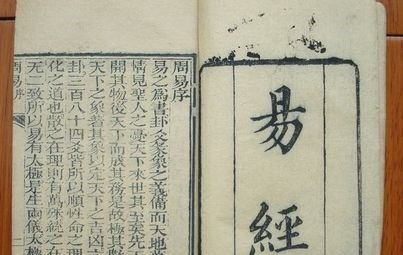 易經
周易序
易之爲書卦爻彖象之義備而天地萬
情見聖人之憂天下來世其至矣先天
開其物後天下而成其務是故極其數
天下之象著其象以定天下之吉凶六
卦三百八十四爻皆所以順性命之理
化之道也散之在理則有萬殊統之在
无二致所以易有太極是生兩儀太極
周易序